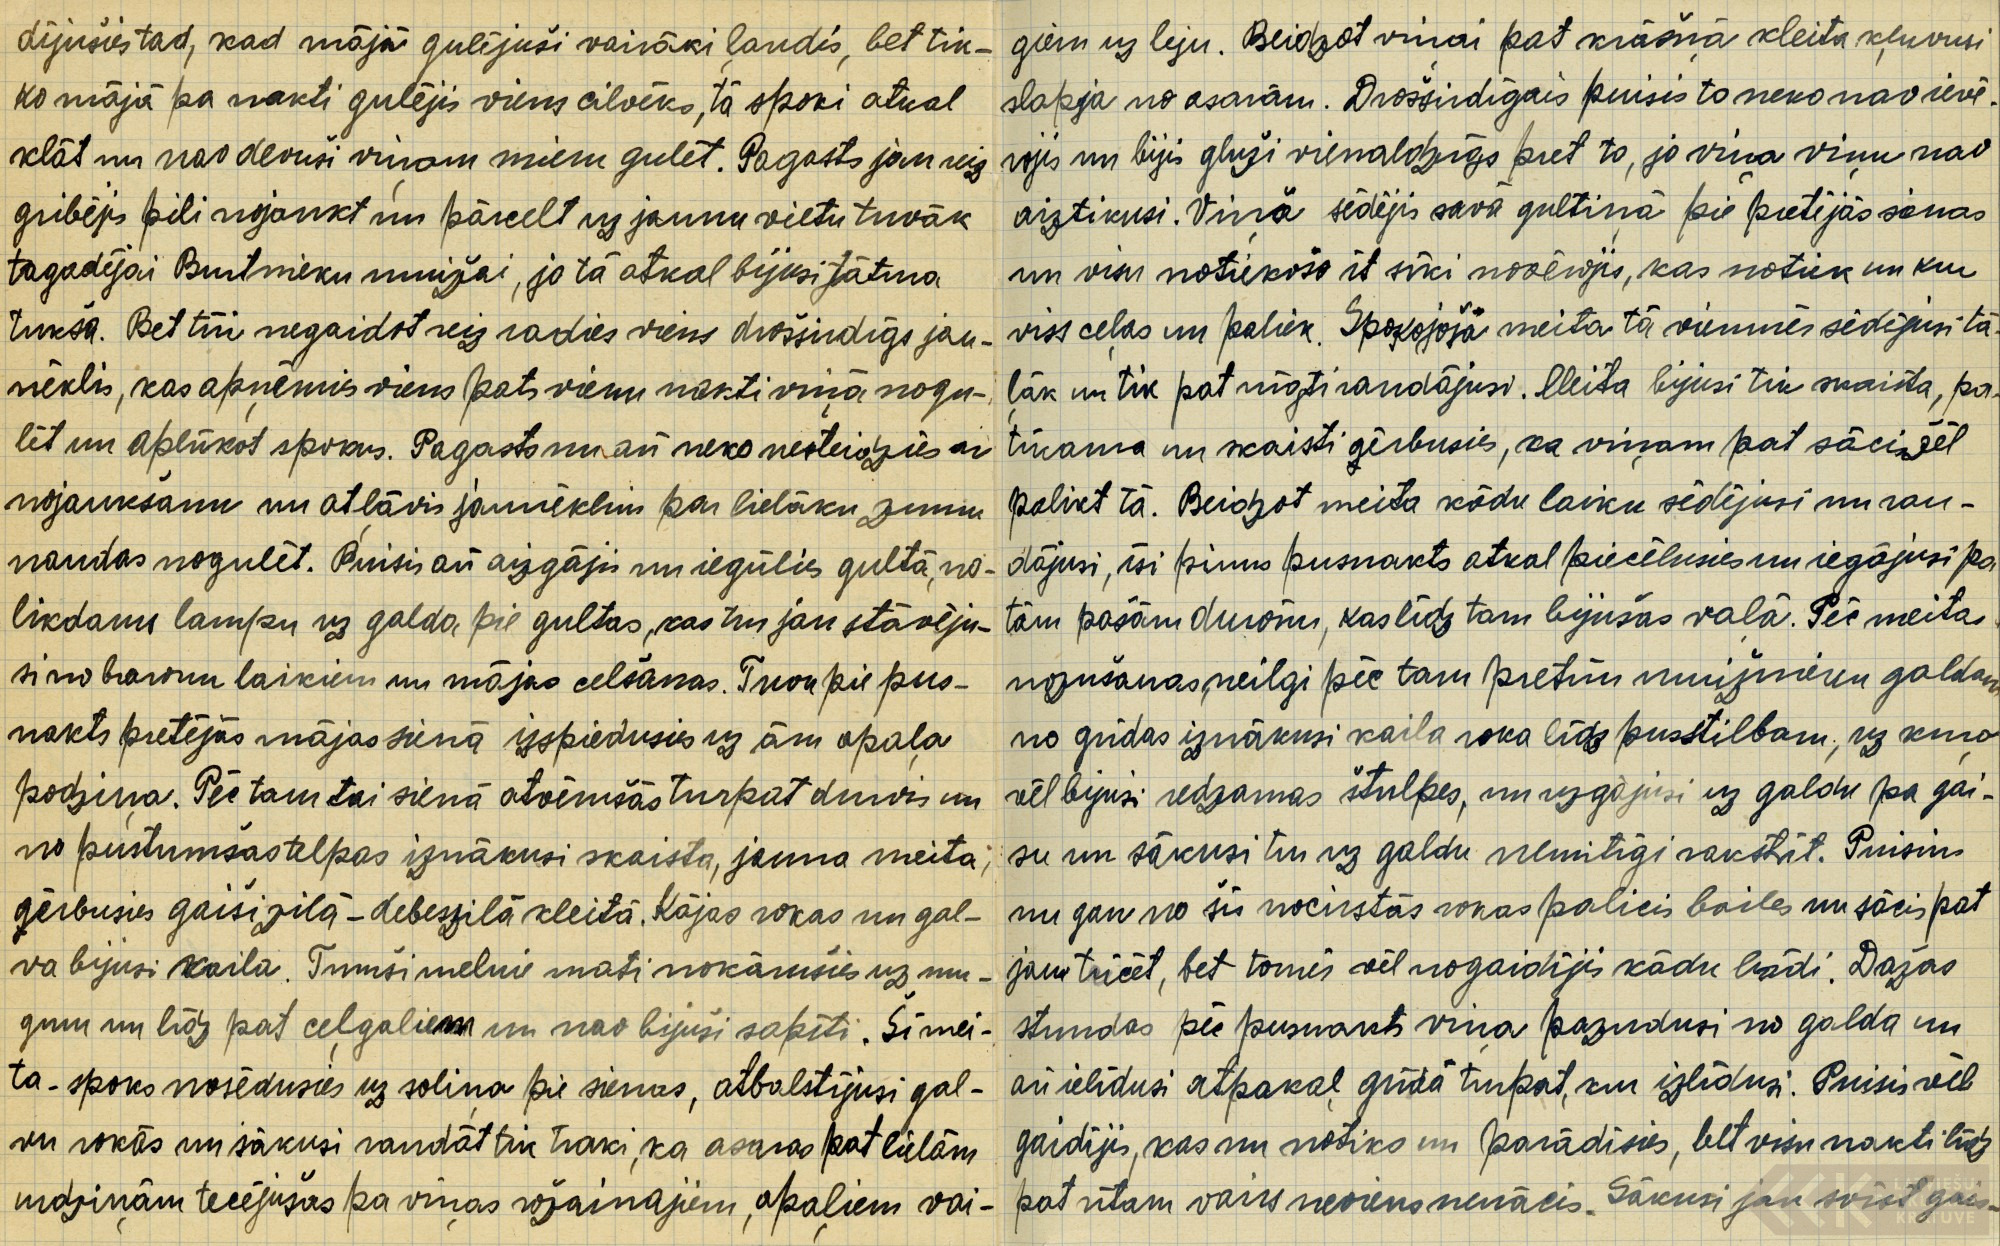 dījušies tad, kad mājā gulējuši vairāki ļaudis, bet tik-
ko mājā pa nakti gulējis viens cilvēks, tā spoki atkal
klāt un nav devuši viņam mieru gulēt. Pagasts jau reiz
gribējis pili nojaukt un pārcelt uz jaunu vietu tuvāk
tagadējai Burtnieku muižai, jo tā atkal bijusi jātur
tukša. Bet tūri negaidot reiz radies viens drošsirdīgs jau-
nēklis, kas apņēmies viens pats vienu nakti viņā nogu-
lēt un aplūkot spokus. Pagasts nu arī neko nesteidzies ar
nojaukšanu un atļāvis jauneklim par lielāku zummu
naudas nogulēt. Puisis arī aizgājis un iegūlies gultā, no-
likdams lampu uz galda pie gultas, kas tur jau stāvēju-
si no baronu laikiem un mājas celšanas. Tuvu pie pus-
nakts pretējās mājas sienā izspiedusies uz āru apaļa
podziņa. Pēc tam tai sienā atvērušās turpat durvis un
no pustumšas telpas iznākusi skaista, jauna meita,
gērbusies gaiši zilā - debeszilā kleitā. Kājas rokas un gal-
va bijusi kaila. Tumši melnie mati nokārušies uz mu-
guru un līdz pat ceļgaliem un nav bijuši sapīti. Šī mei-
ta-spoks nosēdusies uz soliņa pie sienas, atbalstījusi gal-
vu rokās un sākusi raudāt tik traki, ka asaras pat lielām
urdziņām tecējušas pa viņas rožainajiem, apaļiem vai-
giem uz leju. Beidzot viņai pat krāšņā kleita kļuvusi
slapja no asarām. Drošsirdīgais puisis to neko nav ievē-
rojis un bijis gluži vienaldzīgs pret to, jo viņa viņu nav
aiztikusi. Viņš sēdējis savā gultiņā pie pretējās sienas
un visu notiekošo it sīki novērojis, kas notiek un kur
viss ceļas un paliek. Spokojošā meita tā vienmēr sēdējusi tā-
ļāk un tik pat rūgti raudājusi. Meita bijusi tik skaista, pa-
tīkama un skaisti gērbusies, ka viņam pat sācis žēl
palikt tā. Beidzot meita kādu laiku sēdējusi un rau-
dājusi, īsi pirms pusnakts atkal piecēlusies un iegājusi pa
tām pašām durvīm, kas līdz tam bijušas vaļā. Pēc meitas
nozušanas, neilgi pēc tam pretim muižnieku galdam
no grīdas iznākusi kaila roka līdz pusstilbam, uz kuŗa
vēl bijusi redzamas štulpes, un uzgājusi uz galdu pa gai-
su un sākusi tur uz galdu nemitīgi rakstīt. Puisim
nu gan no šīs nocirstās rokas palicis bailes un sācis pat
jau trīcēt, bet tomēr vēl nogaidījis kādu brīdi. Dažas
stundas pēc pusnakts viņa pazudusi no galda un
arī ielīdusi atpakaļ grīdā turpat, kur izlīdusi. Puisis vēl
gaidījis, kas nu notiks un parādīsies, bet visu nakti līdz
pat rītam vairs neviens nenācis. Sākusi jau svīst gais-